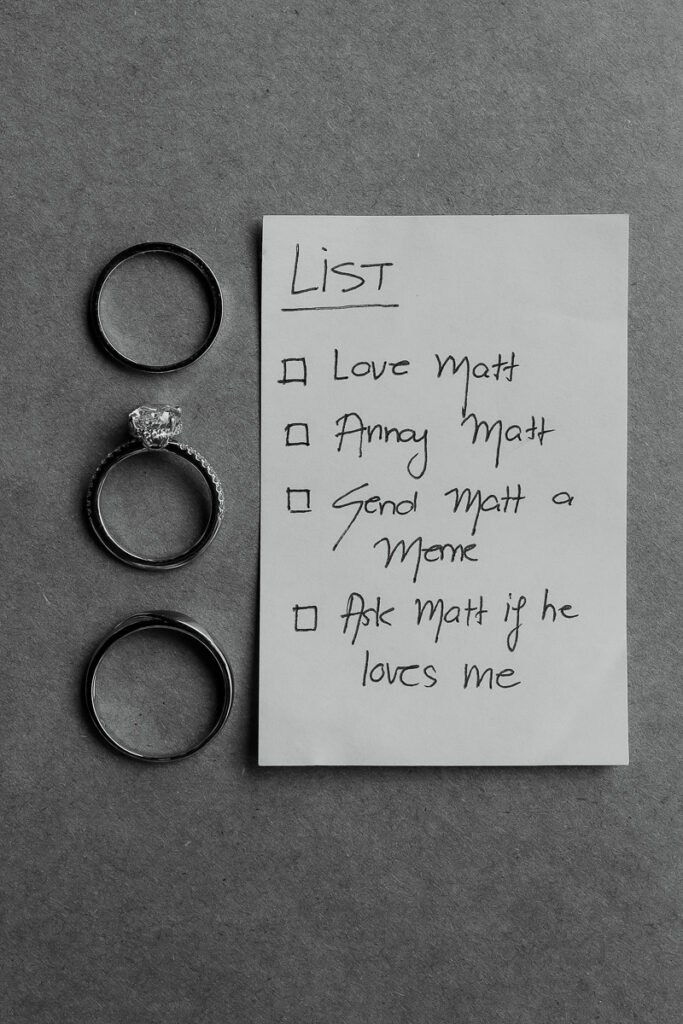 LIST
Love Matt
Annoy Matt
Send Matt a
Meme
Ask Matt if he
loves me